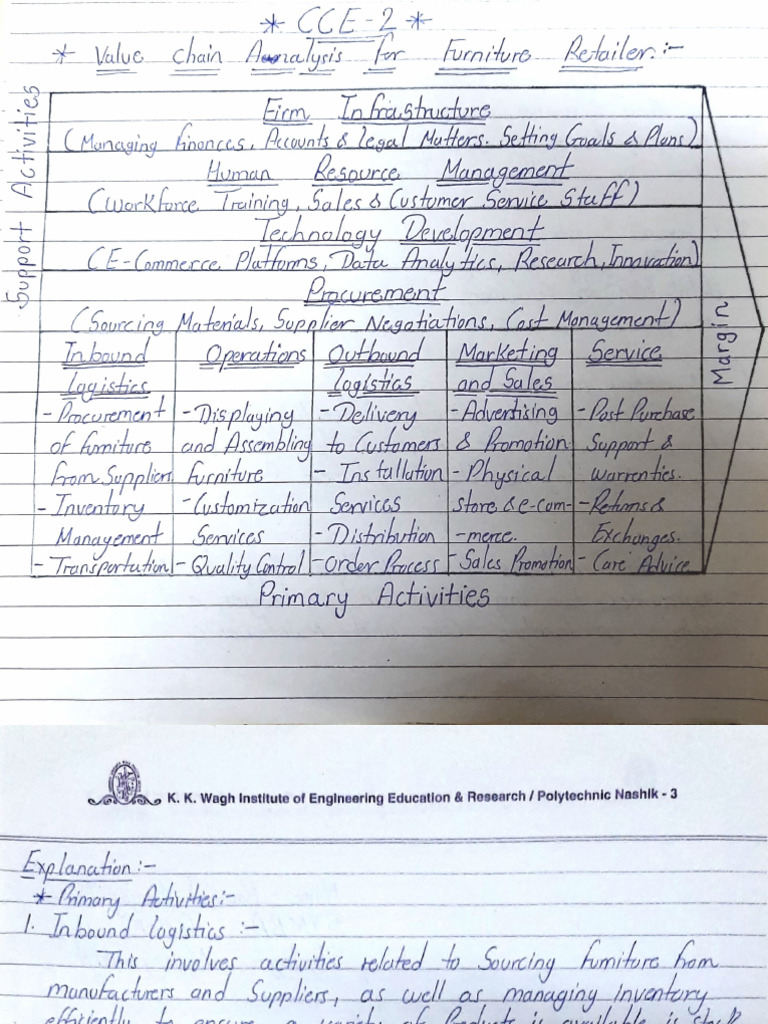 * CCE-2 *
* Value Chain Analysis for Furniture Retailer:-
Support Activities
Firm Infrastructure
(Managing Finances, Accounts & Legal Matters. Setting Goals & Plans)
Human Resource Management
(Workforce Training, Sales & Customer Service Staff)
Technology Development
(E-Commerce Platforms, Data Analytics, Research, Innovation)
Procurement
(Sourcing Materials, Supplier Negotiations, Cost Management)
Inbound
Logistics
- Procurement
of furniture
from Suppliers
- Inventory
Management
- Transportation
Operations
- Displaying
and Assembling
furniture
- Customization
Services
- Quality Control
Outbound
Logistics
- Delivery
to Customers
- Installation
Services
- Distribution
- Order Process
Marketing
and Sales
- Advertising
& Promotion
- Physical
store & e-com-
-merce.
- Sales Promotion
Service
- Post Purchase
Support &
warrenties.
- Returns &
Exchanges.
- Care Advice
Margin
Primary Activities
K. K. Wagh Institute of Engineering Education & Research / Polytechnic Nashik - 3
Explanation:-
* Primary Activities:-
1. Inbound Logistics :-
This involves activities related to Sourcing furniture from
manufacturers and Suppliers, as well as managing inventory
efficiently to ensure a variety of Products is available in stock